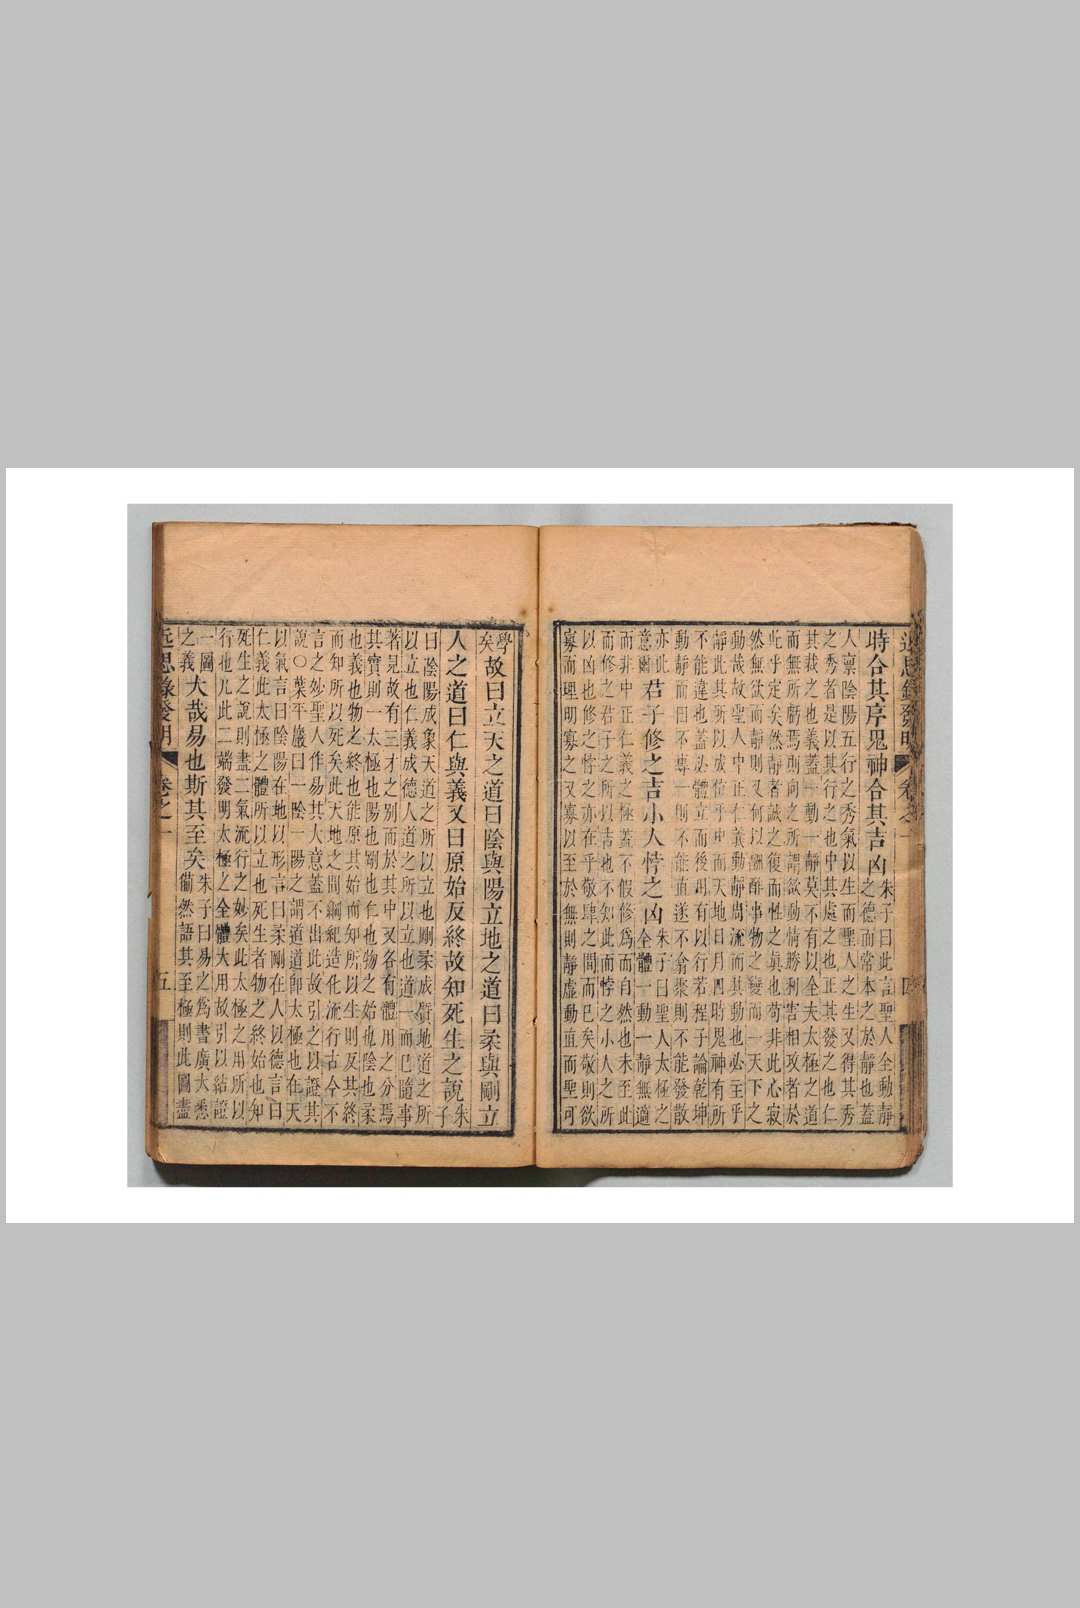 近思錄發明 卷之一 四
時合其序鬼神合其吉凶朱子曰此言聖人全動靜
之德而常本之於靜也蓋
人禀陰陽五行之秀氣以生而聖人之生又得其秀
之秀者是以其行之也中其處之也正其發之也仁
其裁之也義蓋一動一靜莫不有以全夫太極之道
而無所虧焉則向之所謂欲動情勝利害相攻者於
此乎定矣然靜者誠之復而性之真也苟非此心寂
然無欲而靜則又何以酬酢事物之變而一天下之
動哉故聖人中正仁義動靜周流而其動也必主乎
靜此其所以成位乎中而天地日月四時鬼神有所
不能違也蓋必體立而後用有以行若程子論乾坤
動靜而曰不專一則不能直遂不翕聚則不能發散
亦此
意爾
君子修之吉小人悖之凶朱子曰聖人太極之
全體一動一靜無適
而非中正仁義之極蓋不假修為而自然也未至此
而修之君子之所以吉也不知此而悖之小人之所
以凶也修之悖之亦在乎敬肆之間而已矣敬則欲
寡而理明寡之又寡以至於無則靜虛動直而聖可
學
矣
故曰立天之道曰陰與陽立地之道曰柔與剛立
人之道曰仁與義又曰原始反終故知死生之說朱
子
曰陰陽成象天道之所以立也剛柔成質地道之所
以立也仁義成德人道之所以立也道一而已隨事
著見故有三才之別而於其中又各有體用之分焉
其實則一太極也陽也剛也仁也物之始也陰也柔
也義也物之終也能原其始而知所以生則反其終
而知所以死矣此天地之間綱紀造化流行古今不
言之妙聖人作易其大意蓋不出此故引之以證其
說○葉平巖曰一陰一陽之謂道道即太極也在天
以氣言曰陰陽在地以形言曰柔剛在人以德言曰
仁義此太極之體所以立也死生者物之終始也知
死生之說則盡二氣流行之妙矣此太極之用所以
行也凡此二端發明太極之全體大用故引以結證
一圖
之義
大哉易也斯其至矣朱子曰易之為書廣大悉
備然語其至極則此圖盡
近思錄發明 卷之一 五